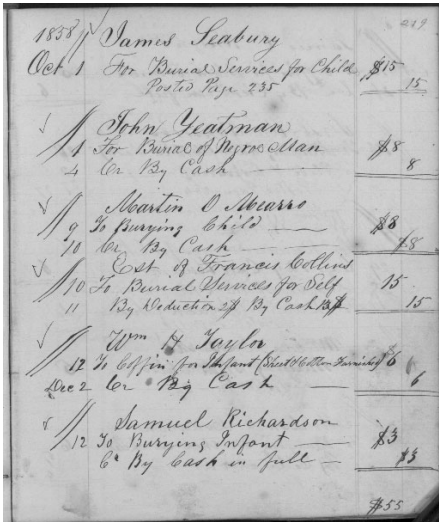 1858 James Seabury 219
Oct 1 For Burial Services for Child $15
Posted Page 235 15
John Yeatman
1 For Burial of Negroe Man $8
4 Cr By Cash 8
Martin O Mearro
9 To Burying Child $8
10 Cr By Cash $8
Est of Francis Collins
10 To Burial Services for Self 15
11 By Deduction 2$ By Cash 15
Wm H Taylor
12 To Coffin for Infant (Sheet & Cotton Furnished) $6
Dec 2 Cr By Cash 6
Samuel Richardson
12 To Burying Infant $3
Cr By Cash in full $3
$55